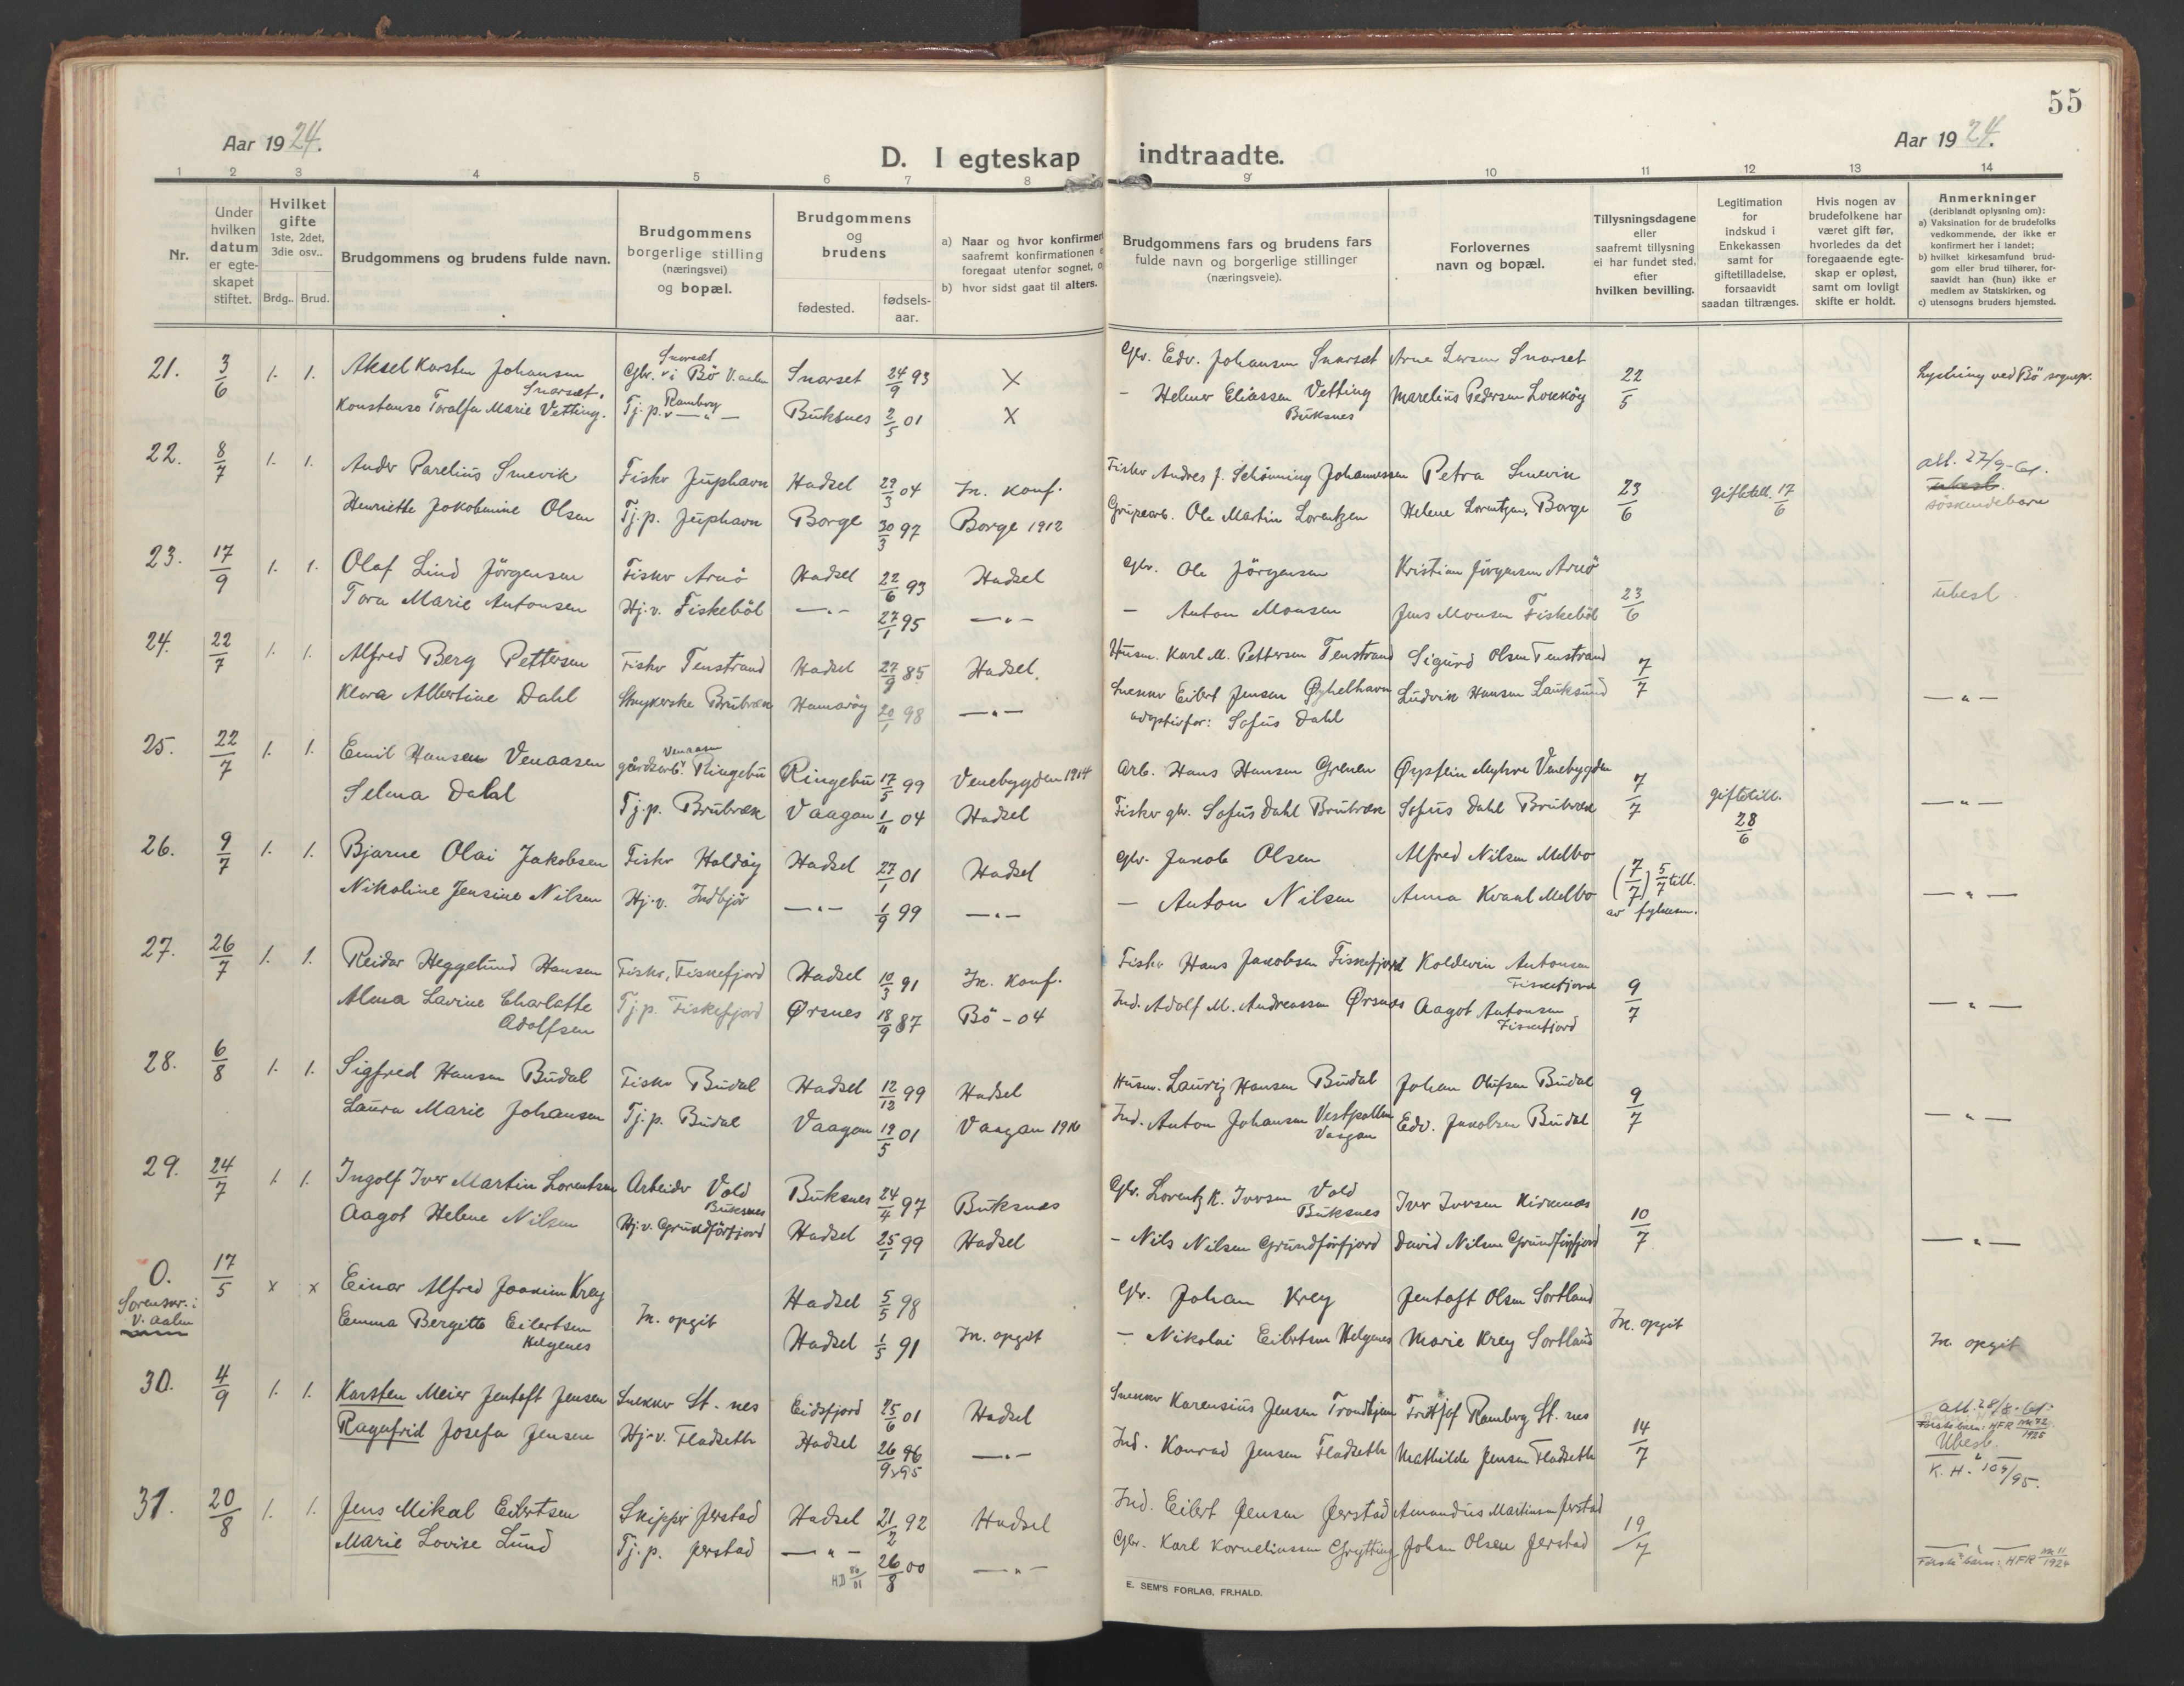 55
Aar 1924.
D. I egteskap indtraadte.
Aar 1924.
1 2 3 4 5 6 7 8 9 10 11 12 13 14
Nr.
Under hvilken datum er egteskapet stiftet.
Hvilket gifte 1ste, 2det, 3die osv..
Brdg.. Brud.
Brudgommens og brudens fulde navn.
Brudgommens borgerlige stilling (næringsvei) og bopæl.
Brudgommens og brudens
fødested.
fødsels-aar.
a) Naar og hvor konfirmer
saafremt konfirmationen e
foregaat utenfor sognet, o
b) hvor sidst gaat til alters.
Brudgommens fars og brudens fars
fulde navn og borgerlige stillinger
(næringsveie).
Forlovernes
navn og bopæl.
Tillysningsdagene
eller
saafremt tillysning
ei har fundet sted,
efter
hvilken bevilling.
Legitimation
for
indskud i
Enkekassen
samt for
giftetilladelse,
forsaavidt
saadan tiltrænges.
Hvis nogen av
brudefolkene har
været gift før,
hvorledes da det
foregaaende egte-
skap er opløst,
samt om lovligt
skifte er holdt.
Anmerkninger
(deriblandt oplysning om):
a) Vaksination for de brudefolks
vedkommende, der ikke er
konfirmert her i landet;
b) hvilket kirkesamfund brud-
gom eller brud tilhører, for-
saavidt han (hun) ikke er
medlem av Statskirken, og
c) utensogns bruders hjemsted.
21. 3/6 1. 1. Aksel Karsten Johansen Snarset. Gbr. Snarset i Bö V.aalen Snarset 24/9 93 X Gbr. Edv. Johansen Snarset Arne Larsen Snarset 22/5 Lysning ved Bö sognepr.
Konstanse Toralfa Marie Vetting. Tj.p. Ramberg — " — Buksnes 2/5 01 X — Helmer Eliassen Vetting Buksnes Marelius Pedersen
22. 8/7 1. 1. Ander Parelius Smevik Fisker Juphavn Hadsel 29/3 04 Ik. konf. Fisker Andres J. Schönning Johannessen Petra Smevik 23/6 giftetill. 17/6 att. 27/9-61. ubesl. söskendebarn
Henriette Jakobmine Olsen Tj.p. Juphavn Borge 30/3 97 Borge 1912 Ole Martin Lorentzen Helene Lorentzen, Borge
23. 17/9 1. 1. Olaf Lind Jörgensen Fisker Arnö Hadsel 22/6 93 Hadsel Gbr. Ole Jörgensen Kristian Jörgensen Arnö 23/6 ubesl.
Tora Marie Antonsen Hj.v. Fiskeböl — " — 27/1 95 — " — — Anton Monsen Jens Monsen Fiskeböl
24. 22/7 1. 1. Alfred Berg Pettersen Fisker Tenstrand Hadsel 27/9 85 Hadsel. Husm. Karl M. Pettersen Tenstrand Sigurd Olsen Tenstrand 7/7 — " —
Klara Albertine Dahl Strykerske Brubræk Hamaröy 20/1 98 — " — Snekker Eilert Jensen Øyhelhavn Ludvik Hansen Lauksund
adoptivfar: Sofus Dahl
25. 22/7 1. 1. Emil Hansen Venaasen gårdsarb. Venaasen Ringebu Ringebu 17/5 99 Venebygden 1914 Arb. Hans Hansen Grenen Øystein Myhre Venebygden 7/7 giftetill. 28/6 — " —
Selma Dahl Tj.p. Brubræk Vaagan 1/11 04 Hadsel Fisker gbr. Sofus Dahl Brubræk Sofus Dahl Brubræk
26. 9/7 1. 1. Bjarne Olai Jakobsen Fisker Holdöy Hadsel 27/1 01 Hadsel Gbr. Jakob Olsen Alfred Nilsen Melbo (7/7) 5/7 till. av fylkesm. — " —
Nikoline Jensine Nilsen Hj.v. Indbjör — " — 1/9 99 — " — — Anton Nilsen Anna Kvaal Melbo
27. 26/7 1. 1. Reidar Heggelund Hansen Fisker, Fiskefjord Hadsel 10/3 91 Ik. konf. Fisker Hans Jakobsen Fiskefjord Koldevin Antonsen Fiskefjord 9/7 — " —
Alma Lavine Charlotte Adolfsen Tj.p. Fiskefjord Ørsnes 18/9 87 Bö - 04 Ind. Adolf M. Andreassen Ørsnes Aagot Antonsen Fiskefjord
28. 6/8 1. 1. Sigfred Hansen Budal Fisker Budal Hadsel 12/12 99 Hadsel Husm. Lauriz Hansen Budal Johan Olufsen Budal 9/7 — " —
Laura Marie Johansen Tj.p. Budal Vaagan 19/5 01 Vaagan 1916 Ind. Anton Johansen Vestpollen Vaagan Edv. Jakobsen Budal
29. 24/7 1. 1. Ingolf Iver Martin Lorentsen Arbeider Vold Buksnes Buksnes 24/4 97 Buksnes Gbr. Lorentz K. Iversen Vold Buksnes Iver Iversen Kirknæs 10/7 — " —
Aagot Helene Nilsen Hj.v. Grundförfjord Hadsel 25/1 99 Hadsel — Nils Nilsen Grundförfjord David Nilsen Grundförfjord
0. Sorenskr. i V.aalen 17/5 x x Einar Alfred Joakim Krey Ik. opgit Hadsel 5/5 98 Ik. opgit Gbr. Johan Krey Jentoft Olsen Sortland Ik. opgit Ik. opgit
Emma Bergitte Eilertsen Helgenes Hadsel 1/5 91 — Nikolai Eilertsen Helgenes Marie Krey Sortland
30. 4/9 1. 1. Karsten Meier Jentoft Jensen Snekker St.nes Eidsfjord 25/6 01 Hadsel Snekker Karensius Jensen Trondhjem Frithjof Ramberg St.nes 14/7 att. 28/8-61. Första barn: HFR nr. 42 1925 Ubesl.
Ragnfrid Josefa Jensen Hj.v. Fladseth Hadsel 26/9 96 x95 — " — Ind. Konrad Jensen Fladseth Mathilde Jensen Fladseth K.H. 104/95.
31. 20/8 1. 1. Jens Mikal Eilertsen Skipper Jerstad Hadsel 21/2 92 Hadsel Ind. Eilert Jensen Jerstad Amandus Martinsen Jerstad 19/7 — " —
Marie Lovise Lund Tj.p. Jerstad — " — 26/8 00 — " — Gbr. Karl Korneliussen Grytting Johan Olsen Jerstad Första barn: HFR nr. 11 1924
E. SEM'S FORLAG, FR.HALD.